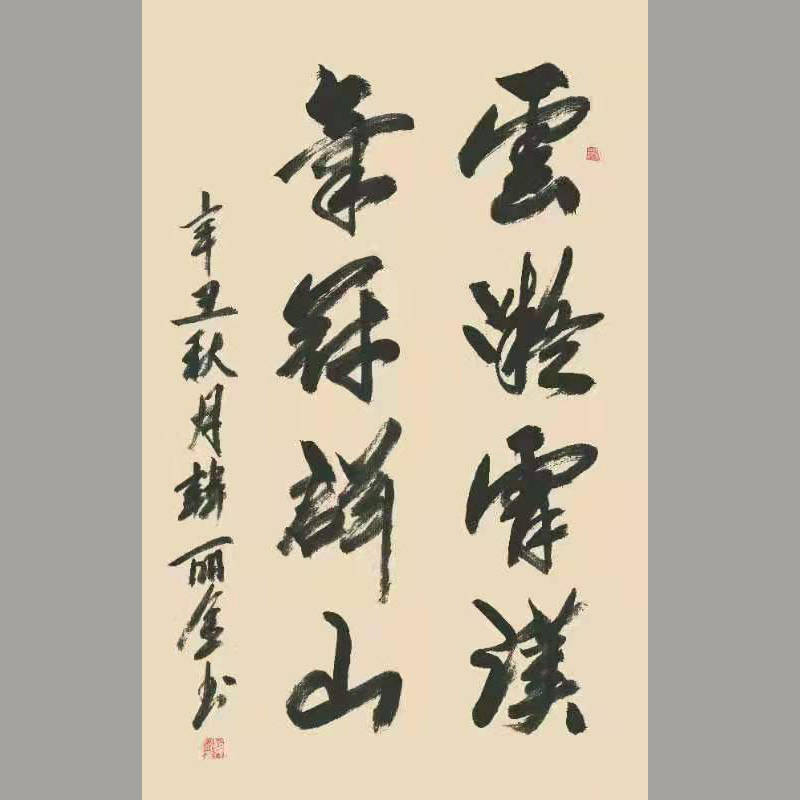 雲凝霄漢
氣冠群山
辛丑秋月韓丽金书